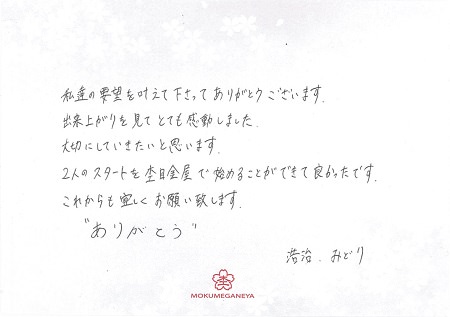 私達の要望を叶えて下さってありがとうございます.
出来上がりを見てとても感動しました.
大切にしていきたいと思います.
2人のスタートを杢目金屋で始めることができて良かったです.
これからも宜しくお願い致します.
"ありがとう"
浩治. みどり
MOKUMEGANEYA